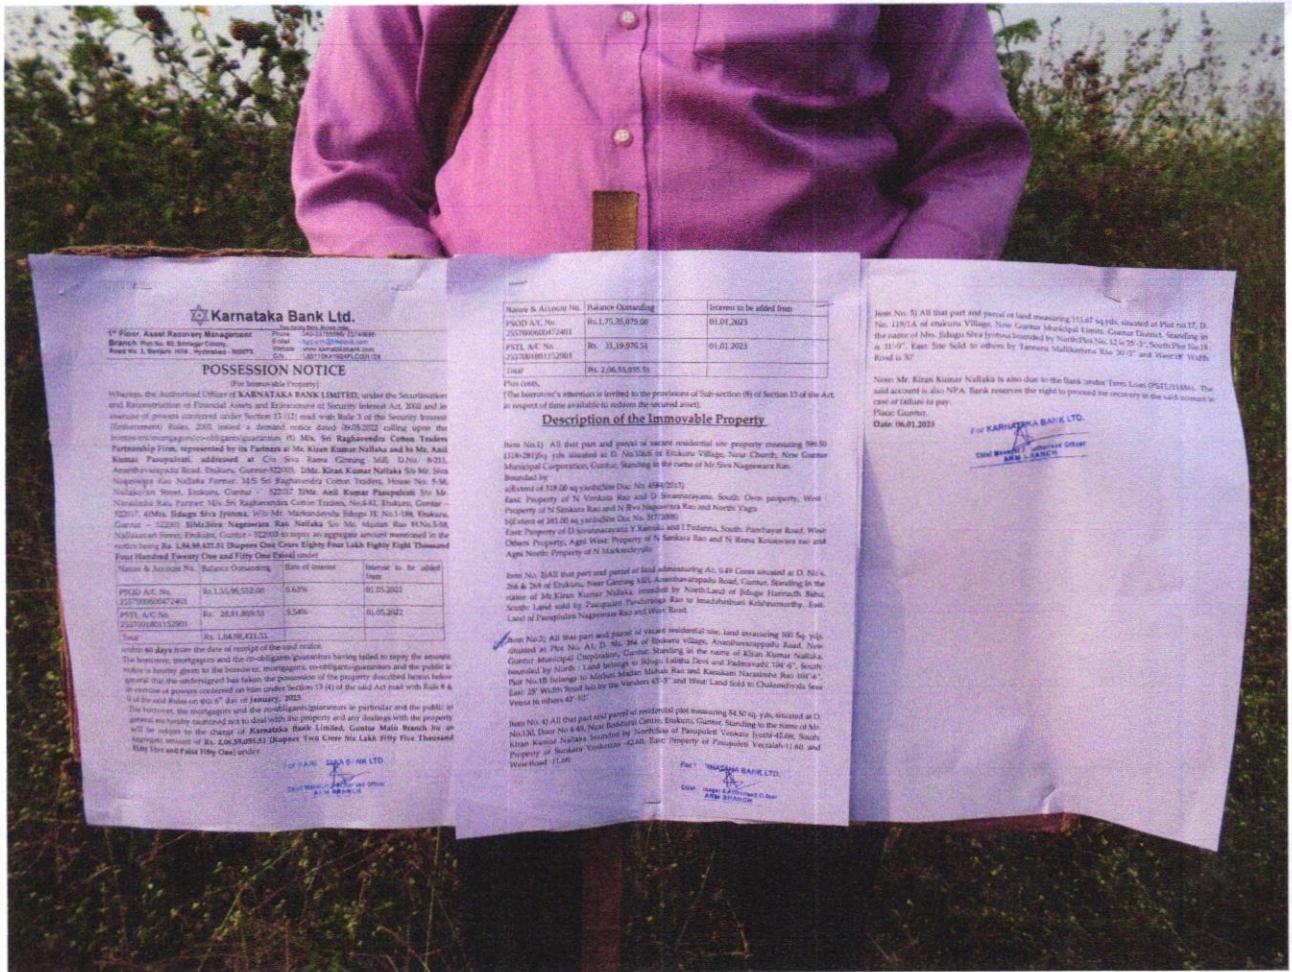 Karnataka Bank Ltd.
1st Floor, Asset Recovery Management
Branch, Plot No. 50, Srinagar Colony,
Road No. 3, Banjara Hills, Hyderabad - 500073.
Phone
E-mail
Website : www.karnatakabank.com
CIN
POSSESSION NOTICE
(For Immovable Property)
Whereas, the Authorised Officer of KARNATAKA BANK LIMITED, under the Securitisation
and Reconstruction of Financial Assets and Enforcement of Security Interest Act, 2002 and in
exercise of powers conferred under Section 13 (12) read with Rule 3 of the Security Interest
(Enforcement) Rules, 2002 issued a demand notice dated 09.05.2022 calling upon the
borrowers/mortgagors/co-obligants/guarantors (1) M/s. Sri Raghavendra Cotton Traders
Partnership Firm, represented by its Partners a) Mr. Kiran Kumar Nallaka and b) Mr. Anil
Kumar Pasupulati, addressed at C/o Siva Rama Ginning Mill, D.No. 8-211,
Ananthavarapadu Road, Etukuru, Guntur-522003, 2)Mr. Kiran Kumar Nallaka S/o Mr. Siva
Nageswara Rao Nallaka Partner: M/S Sri Raghavendra Cotton Traders, House No. 5-58,
Nallakavari Street, Etukuru, Guntur - 522017 3)Mr. Anil Kumar Pasupulati S/o Mr.
Narasimha Rao, Partner: M/s. Sri Raghavendra Cotton Traders, Etukuru, Guntur -
522017, 4)Mrs. Jidugu Siva Jyotsna, W/o Mr. Markandeyulu Jidugu Etukuru,
Guntur - 522003 5)Mr.Siva Nageswara Rao Nallaka S/o Mr. Mastan Rao H.No.5-58,
Nallakavari Street, Etukuru, Guntur - 522003 to repay an aggregate amount mentioned in the
notice being Rs. 1,84,88,421.51 [Rupees One Crore Eighty Four Lakh Eighty Eight Thousand
Four Hundred Twenty One and Fifty One Paisa] under
Nature & Account No. Balance Outstanding Rate of Interest Interest to be added from
PSOD A/C No. 2557000600472401 9.63% 01.05.2022
PSTL A/C No. 2557001801152901 9.54% 01.05.2022
Total
within 60 days from the date of receipt of the said notice.
The borrower, mortgagors and the co-obligants/guarantors having failed to repay the amount
notice is hereby given to the borrower, mortgagors, co-obligants/guarantors and the public in
general that the undersigned has taken the possession of the property described herein below
in exercise of powers conferred on him under Section 13 (4) of the said Act read with Rule 8 &
9 of the said Rules on this 6th day of January, 2023.
The borrower, the mortgagors and the co-obligants/guarantors in particular and the public in
general are hereby cautioned not to deal with the property and any dealings with the property
will be subject to the charge of Karnataka Bank Limited, Guntur Main Branch for an
aggregate amount of Rs. 2,06,55,055.51 [Rupees Two Crore Six Lakh Fifty Five Thousand
Fifty Five and Paisa Fifty One] under
BANK LTD.
Authorised Officer
ARM BRANCH
Nature & Account No. Balance Outstanding Interest to be added from
PSOD A/C No. 2557000600472401 Rs.1,75,35,079.00 01.01.2023
PSTL A/C No. 2557001801152901 Rs. 31,19,976.51 01.01.2023
Total Rs. 2,06,55,055.51
Plus costs.
(The borrower's attention is invited to the provisions of Sub-section (8) of Section 13 of the Act
in respect of time available to redeem the secured asset).
Description of the Immovable Property
Item No.1) All that part and parcel of vacant residential site property measuring
sq. yds situated at D. No. of Etukuru Village, Near Church, New Guntur
Municipal Corporation, Guntur, Standing in the name of Mr.Siva Nageswara Rao.
Bounded by
East: Property of N Venkata Rao and D Sivannarayana, South: Own property, West :
Property of N Sankara Rao and N Siva Nageswara Rao and North: Vagu
East: Property of D Sivannarayana South: Panchayat Road, West:
Others Property, Agni West: Property of N Sankara Rao and N Rama Koteswara rao and
Agni North: Property of N Markandeyulu
Item No. 2)All that part and parcel of land admeasuring Ac. 0.49 Cents situated at D. No's.
266 & 268 of Etukuru, Near Ginning Mill, Ananthavarapadu Road, Guntur, Standing in the
name of Mr.Kiran Kumar Nallaka, bounded by North:Land of Jidugu Harinadh Babu,
South: Land sold by Pasupulati Panduranga Rao to Imadabathuni Krishnamurthy, East:
Land of Pasupuleti Nageswara Rao and West: Road
Item No.3) All that part and parcel of vacant residential site, land measuring 500 Sq. yds.
situated at Plot No. A1, D. No. 266 of Etukuru village, Ananthavarappadu Road, New
Guntur Municipal Corporation, Guntur, Standing in the name of Kiran Kumar Nallaka,
bounded by North : Land belongs to Jidugu Lalitha Devi and Padmavathi 104'-6", South:
Plot No.1B belongs to Madan Mohan Rao and Kanakam Narasimha Rao 104'-6",
East: 28' Width Road left by the Vendors 43'-3" and West: Land Sold to Chalamchyala Sesu
Veera to others 42'-10"
Item No. 4) All that part and parcel of residential plot measuring 54.50 sq. yds, situated at D.
No.130, Door No 4-69, Near Boddurai Centre, Etukuru, Guntur, Standing in the name of Mr.
Kiran Kumar Nallaka bounded by North:Site of Pasupulati Venkata Jyothi-42.60, South:
Property of Sunkara Venkaiah -42.60, East: Property of Pasupuleti Veeraiah-11.60 and
West:Road -11.60.
KARNATAKA BANK LTD.
Chief Manager & Authorised Officer
ARM BRANCH
Item No. 5) All that part and parcel of land measuring 111.67 sq.yds, situated at Plot no.17, D.
No. 119/1A of etukuru Village, New Guntur Municipal Limits, Guntur District, Standing in
the name of Mrs. Jidugu Siva Jyotsna bounded by North:Plot No. South:Plot No.18
is 31'-9", East: Site Sold to others by Tannuru Mallikarjuna Rao 30'-3" and Width
Road is 30'
Note: Mr. Kiran Kumar Nallaka is also due to the Bank under Term Loan (PSTL/11886). The
said account is also NPA. Bank reserves the right to proceed for recovery in the said account in
case of failure to pay.
Place: Guntur.
Date: 06.01.2023
For KARNATAKA BANK LTD.
Chief Manager & Authorised Officer
ARM BRANCH